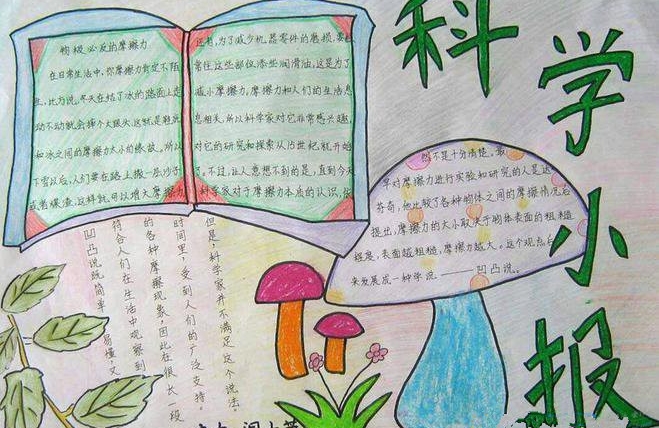 科学小报
物极必反的摩擦力
在日常生活中，你摩擦力肯定不陌
生，比方说，冬天在结了冰的路面上走
动不动就会摔个大跟头，这就是鞋底
和冰之间的摩擦力太小的缘故。所以
下雪以后，人们要在路上撒一些沙子
或者煤渣，这样就可以增大摩擦力
还有，为了减少机器零件的磨损，要经
常往这些部位添些润滑油，这是为了
减小摩擦力。摩擦力和人们的生活息
息相关，所以科学家对它非常感兴趣，
对它的研究和探索从15世纪就开始
了。不过，让人意想不到的是，直到今天
科学家对于摩擦力本点的认识，依
然不是十分清楚。最
早对摩擦力进行实验和研究的人是达
芬奇，他比较了各种物体之间的摩擦情况后
提出，摩擦力的大小取决于物体表面的粗糙
程度，表面越粗糙，摩擦力越大。这个观点后
来发展成一种学说——凹凸说。
凹凸说既简单 易懂又
符合人们在生活中观察到
的各种摩擦现象，因此在很长一段
时间里，受到人们的广泛支持。
但是，科学家并不满足这个说法。